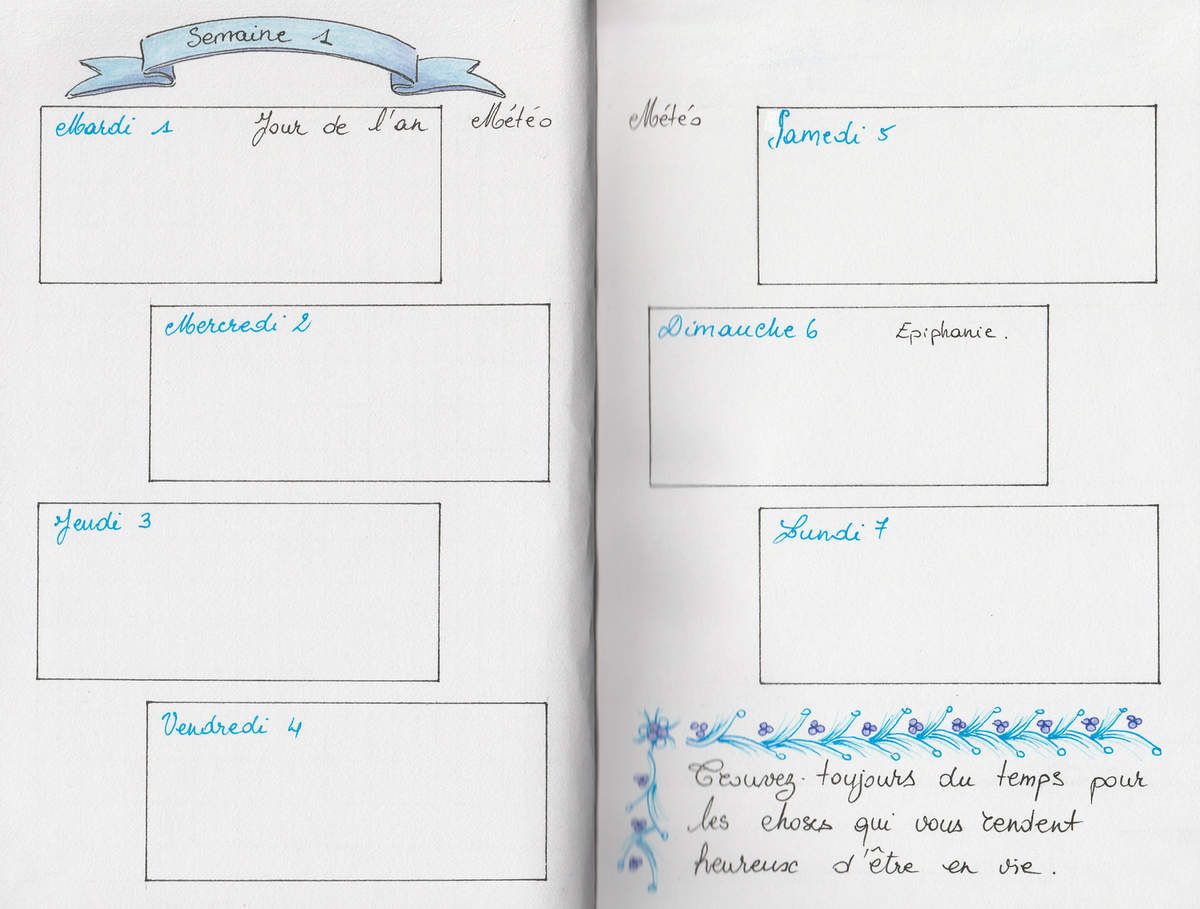 Semaine 1
Mardi 1 Jour de l'an Météo
Mercredi 2
Jeudi 3
Vendredi 4
Météo Samedi 5
Dimanche 6 Epiphanie.
Lundi 7
Trouvez toujours du temps pour
les choses qui vous rendent
heureux d'être en vie.